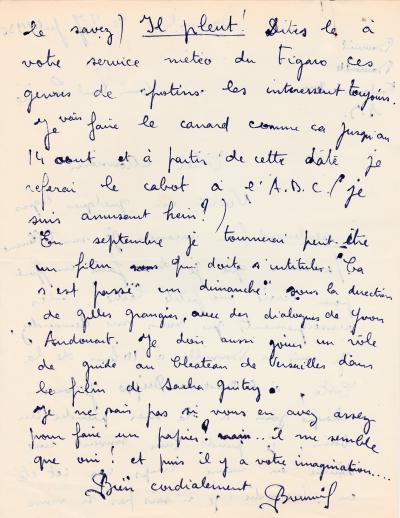 le savez) Il pleut! Dites le à
votre service meteo du Figaro ces
genres de potins les interessent toujours.
Je vais faire le canard comme ca jusqu'au
14 aout et à partir de cette date je
referai le cabot à l'A.B.C. (je
suis amusant hein?)
En septembre je tournerai peut être
un film qui doit s'intituler: "Ca
s'est passé un dimanche" sous la direction
de Gilles Grangier, avec des dialogues de Yvan
Audouard. Je dois aussi jouer un rôle
de guide au Chateau de Versailles dans
le film de Sacha Guitry.
Je ne sais pas si vous en avez assez
pour faire un papier? mais... il me semble
que oui! et puis il y a votre imagination....
Bien cordialement Bourvil